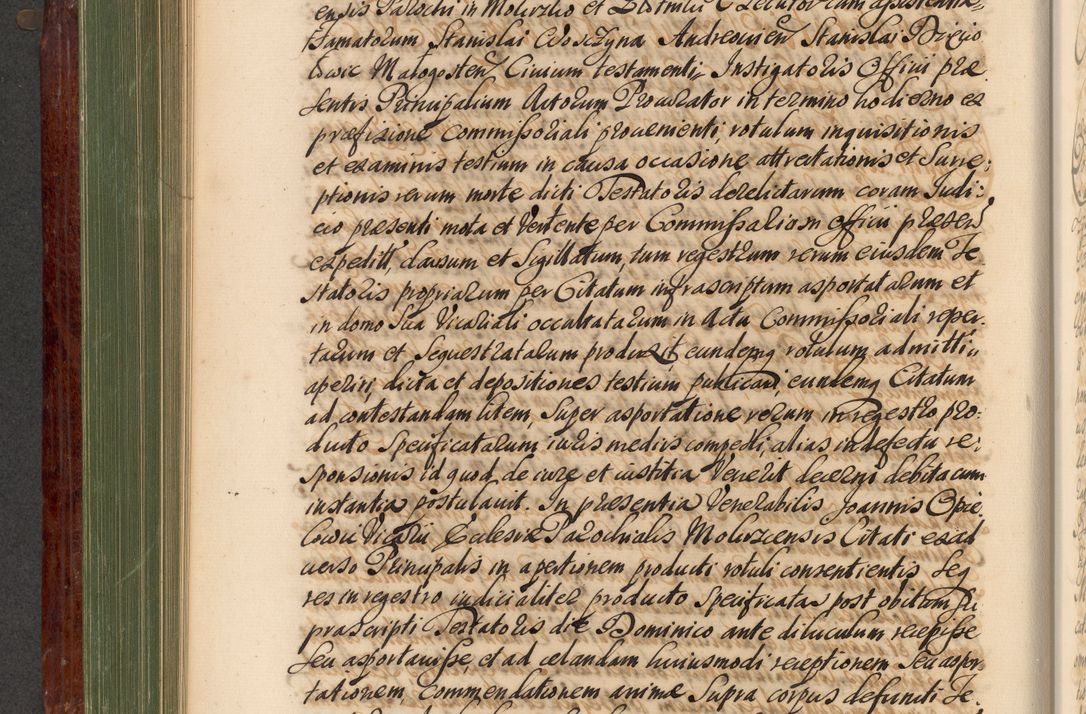 ensis Parochi in Molirzko et
Famatorum Stanislai Andreovien Stanislai
Malogosten Civium testamenti, Instigatoris Officii præ
sentis Principalium Actorum Procurator in termino hodierno ex
præfixione Commissoriali provenienti, rotulum inquisitionis
et examinis testium in causa occasione attrectationis et Surre,
ptionis rerum morte dicti Testatoris derelictarum coram Judi:
cio præsenti mota et Vertente per Commissarium officii præsen
expeditt, clausum et Sigillatum, tum regestrum rerum eiusdem Te,
statoris propriarum per Citatum infrascriptum asportatarum et
in domo Sua Vicariali occultatarum in Actu Commissoriali reper,
tarum et Sequestratarum produxit, eundemq rotulum admitti,,
aperiri, dicta et depositiones testium publicari, eundemq Citatum
ad contestandam litem, Super asportatione rerum in regestro pro:
ducto Specificatarum iuris mediis compelli, alias in defectu re:
sponsionis id quod de iure et iustitia Venerit decerni debita cum
instantia postulavit. In præsentia Venerabilis Joannis Opie,
lowic Vicarii Ecclesiæ Parochialis Molirzcensis Citati ex ad
verso Principalis in apertionem producti rotuli consentientis Seq
res in regestro iudicialiter producto Specificatas post obitum Su
prascripti Testatoris die Dominico ante diluculum recepisse
Seu asportavisse et ad celandam huiusmodi receptionem Seu aspor,
tationem, Commendationem animæ Supra corpus defuncti Te,